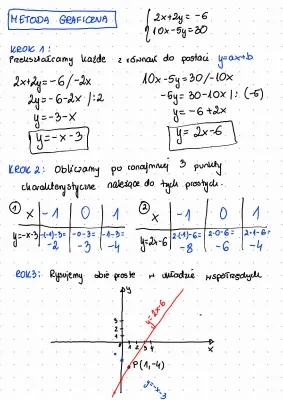 METODA GRAFICZNA
2x+2y = -6
10x-5y=30
KROK 1:
Przekształcamy każde z równań do postaci y=ax+b
2x+2y=-6/-2x
10x-5y=30/-10x
2y=-6-2x /:2
-5y=30-10x /: (-5)
y=-3-x
y=-6+2x
y=-x-3
y=2x-6
KROK 2: Obliczamy po conajmniej 3 punkty
charakterystyczne należące do tych prostych.
① x -1 0 1
② x -1 0 1
y=-x-3 -(-1)-3= -0-3= -1-3=
-2 -3 -4
y=2x-6 2·(-1)-6= 2·0-6= 2·1-6=
-8 -6 -4
KROK 3: Rysujemy obie proste w układzie współrzędnych
y
y=2x-6
3
2
1
1 2 3 4
x
P(1,-4)
y=-x-3